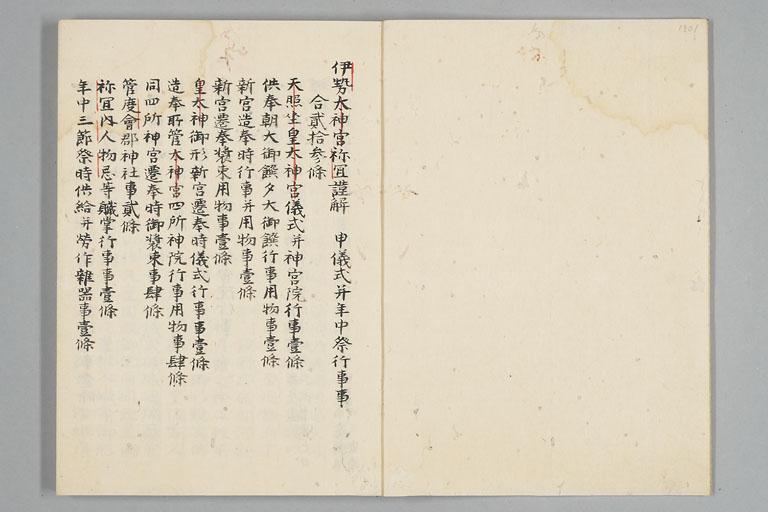 伊勢太神宮祢冝謹解　申儀式并年中祭行事事
合貳拾参條
天照坐皇太神宮儀式并神宮院行事壹條
供奉朝大御饌夕大御饌行事用物事壹條
新宮造奉時行事并用物事壹條
新宮遷奉装束用物事壹條
皇太神御形新宮遷奉時儀式行事事壹條
造奉所管太神宮四所神院行事用物事肆條
同四所神宮遷奉時御装束事肆條
管度會郡神社事貳條
祢冝内人物忌等軄掌行事事壹條
年中三節祭時供給并勞作雜器事壹條